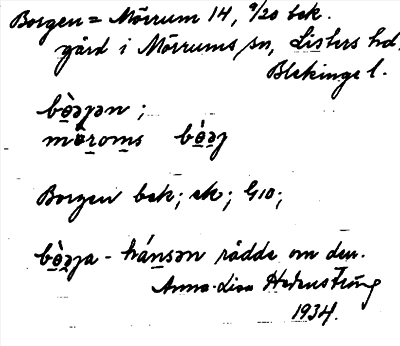 Borgen = Mörrum 14, 9/20 bek.
gård i Mörrums sn, Listers hd.
Blekinge l.
bȯ̱̀əjən ;
mö̱ro̱m̱s bȯ̱̀əj
Borgen bek; ek; G10;
bȯ̱̀əja - hánsən rådde om den.
Anna-Lisa Hedenström
1934.